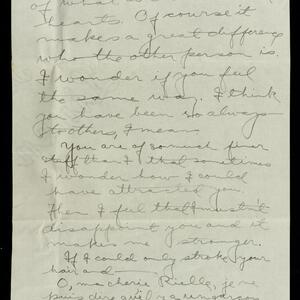 of what
hearts. Of course it
makes a great difference
who the other person is.
I wonder if you feel
the same way. I think
you have been so always
to others, I mean
You are of so much finer
stuff than I that sometimes
I wonder how I could
have attracted you.
Then I feel that I mustn't
disappoint you and it
makes me stronger.
If I could only stroke your
hair and—
O, ma cherie Rielle, je ne
puis dire qu'il y a